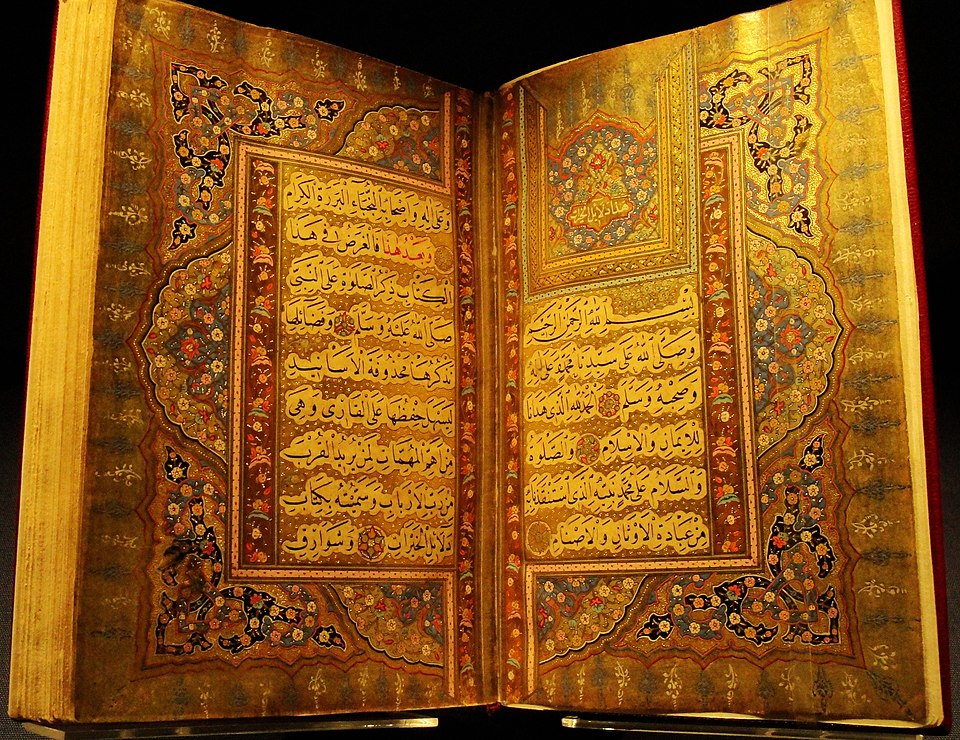 بِسْمِ اللّٰهِ الرَّحْمٰنِ الرَّحِيمِ
وَصَلَّى اللّٰهُ عَلَى سَيِّدِنَا مُحَمَّدٍ وَعَلَى اٰلِهِ
وَصَحْبِهِ وَسَلَّمَ الْحَمْدُ لِلّٰهِ الَّذِي هَدَانَا
لِلْاِيمَانِ وَالْاِسْلَامِ وَالصَّلٰوةُ
وَالسَّلَامُ عَلَى مُحَمَّدٍ نَبِيِّهِ الَّذِي اسْتَنْقَذَنَا بِهِ
مِنْ عِبَادَةِ الْاَوْثَانِ وَالْاَصْنَامِ
وَعَلَى اٰلِهِ وَاَصْحَابِهِ النُّجَبَاءِ الْبَرَرَةِ الْكِرَامِ
وَبَعْدَ هٰذَا فَالْغَرَضُ فِي هٰذَا
الْكِتَابِ ذِكْرُ الصَّلٰوةِ عَلَى النَّبِيِّ
صَلَّى اللّٰهُ عَلَيْهِ وَسَلَّمَ وَفَضَائِلِهَا
نَذْكُرُهَا مَحْذُوفَةَ الْاَسَانِيدِ
لِيَسْهُلَ حِفْظُهَا عَلَى الْقَارِئِ وَهِيَ
مِنْ اَهَمِّ الْمُهِمَّاتِ لِمَنْ يُرِيدُ الْقُرْبَ
مِنْ رَبِّ الْاَرْبَابِ وَسَمَّيْتُهُ بِكِتَابِ
دَلَائِلِ الْخَيْرَاتِ وَشَوَارِقِ